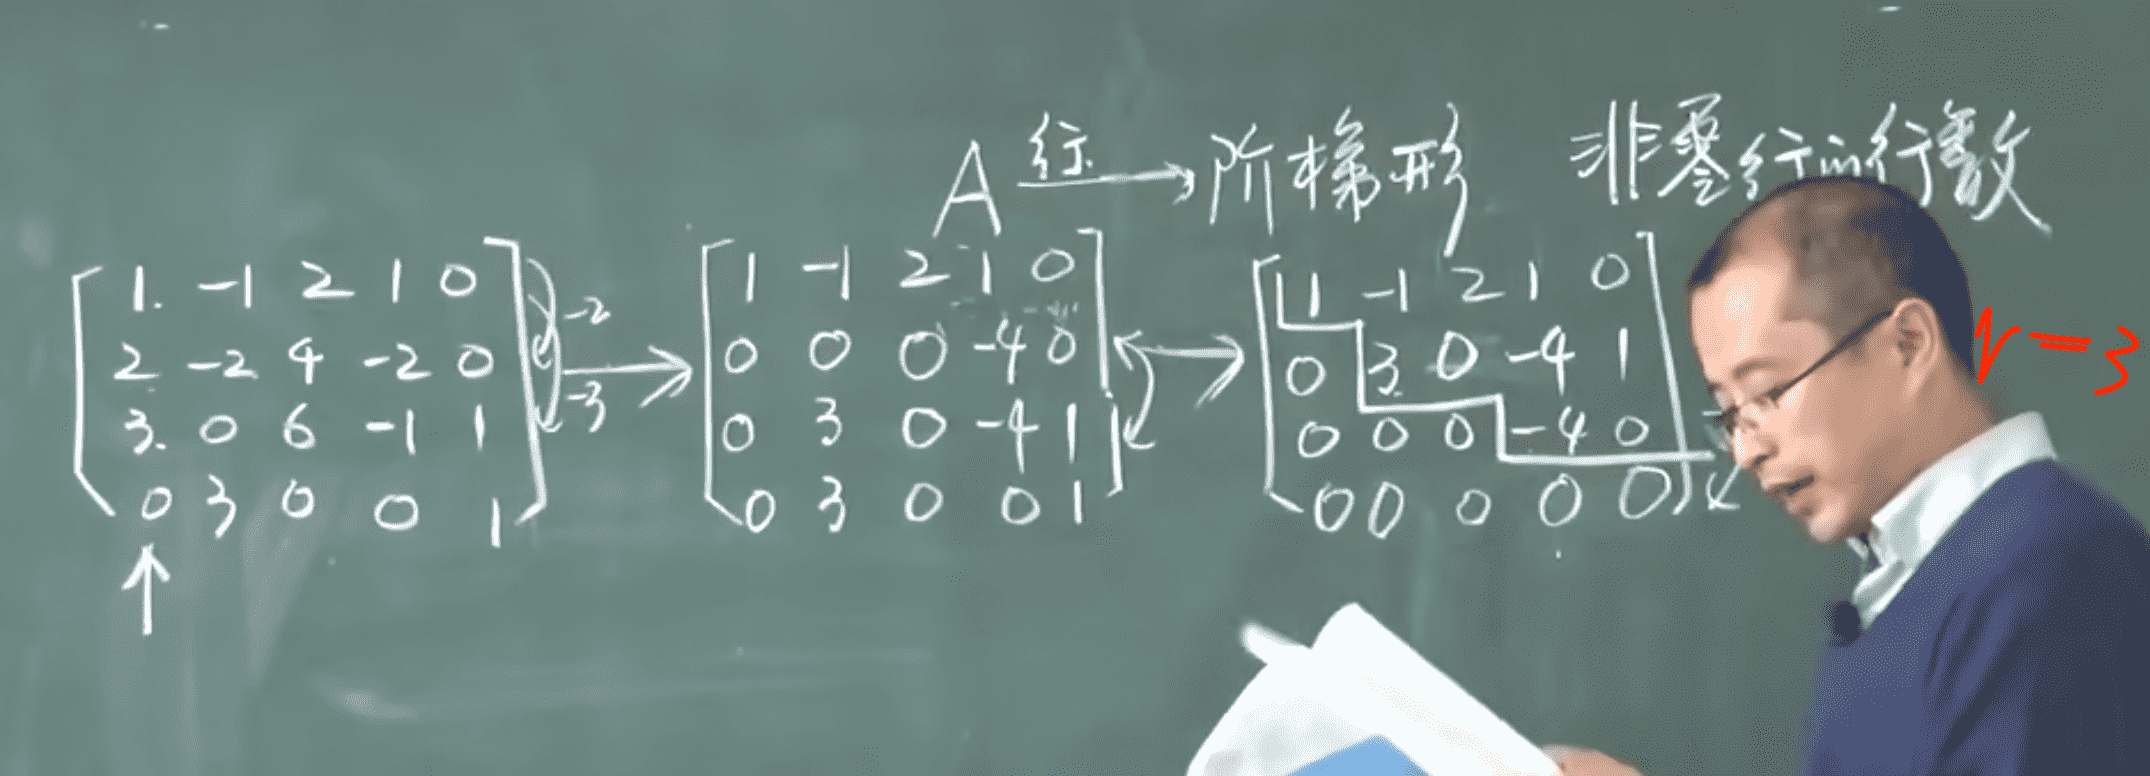 A 行→ 阶梯形 非零行的行数
1. -1 2 1 0
2 -2 4 -2 0
3. 0 6 -1 1
0 3 0 0 1
-2
-3
1 -1 2 1 0
0 0 0 -4 0
0 3 0 -4 1
0 3 0 0 1
1 -1 2 1 0
0 3. 0 -4 1
0 0 0 -4 0
0 0 0 0 0
r=3